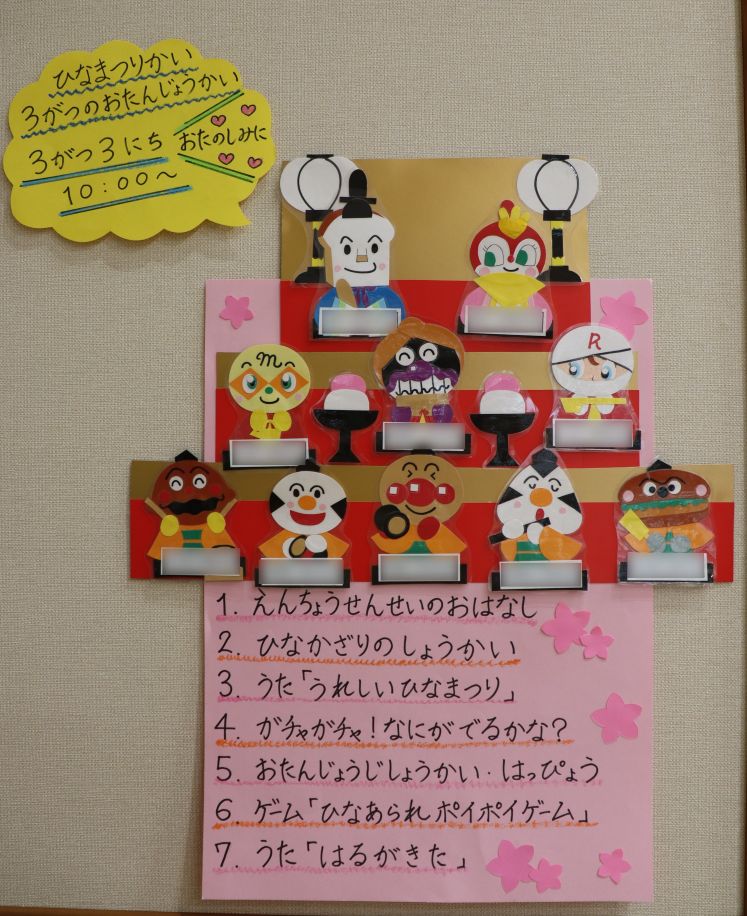 ひなまつりかい
3がつのおたんじょうかい
3がつ3にち
おたのしみに
10:00〜
m
R
1. えんちょうせんせいのおはなし
2. ひなかざりのしょうかい
3. うた「うれしいひなまつり」
4. ガチャガチャ!なにがでるかな?
5. おたんじょうじしょうかい・はっぴょう
6. ゲーム「ひなあられポイポイゲーム」
7. うた「はるがきた」